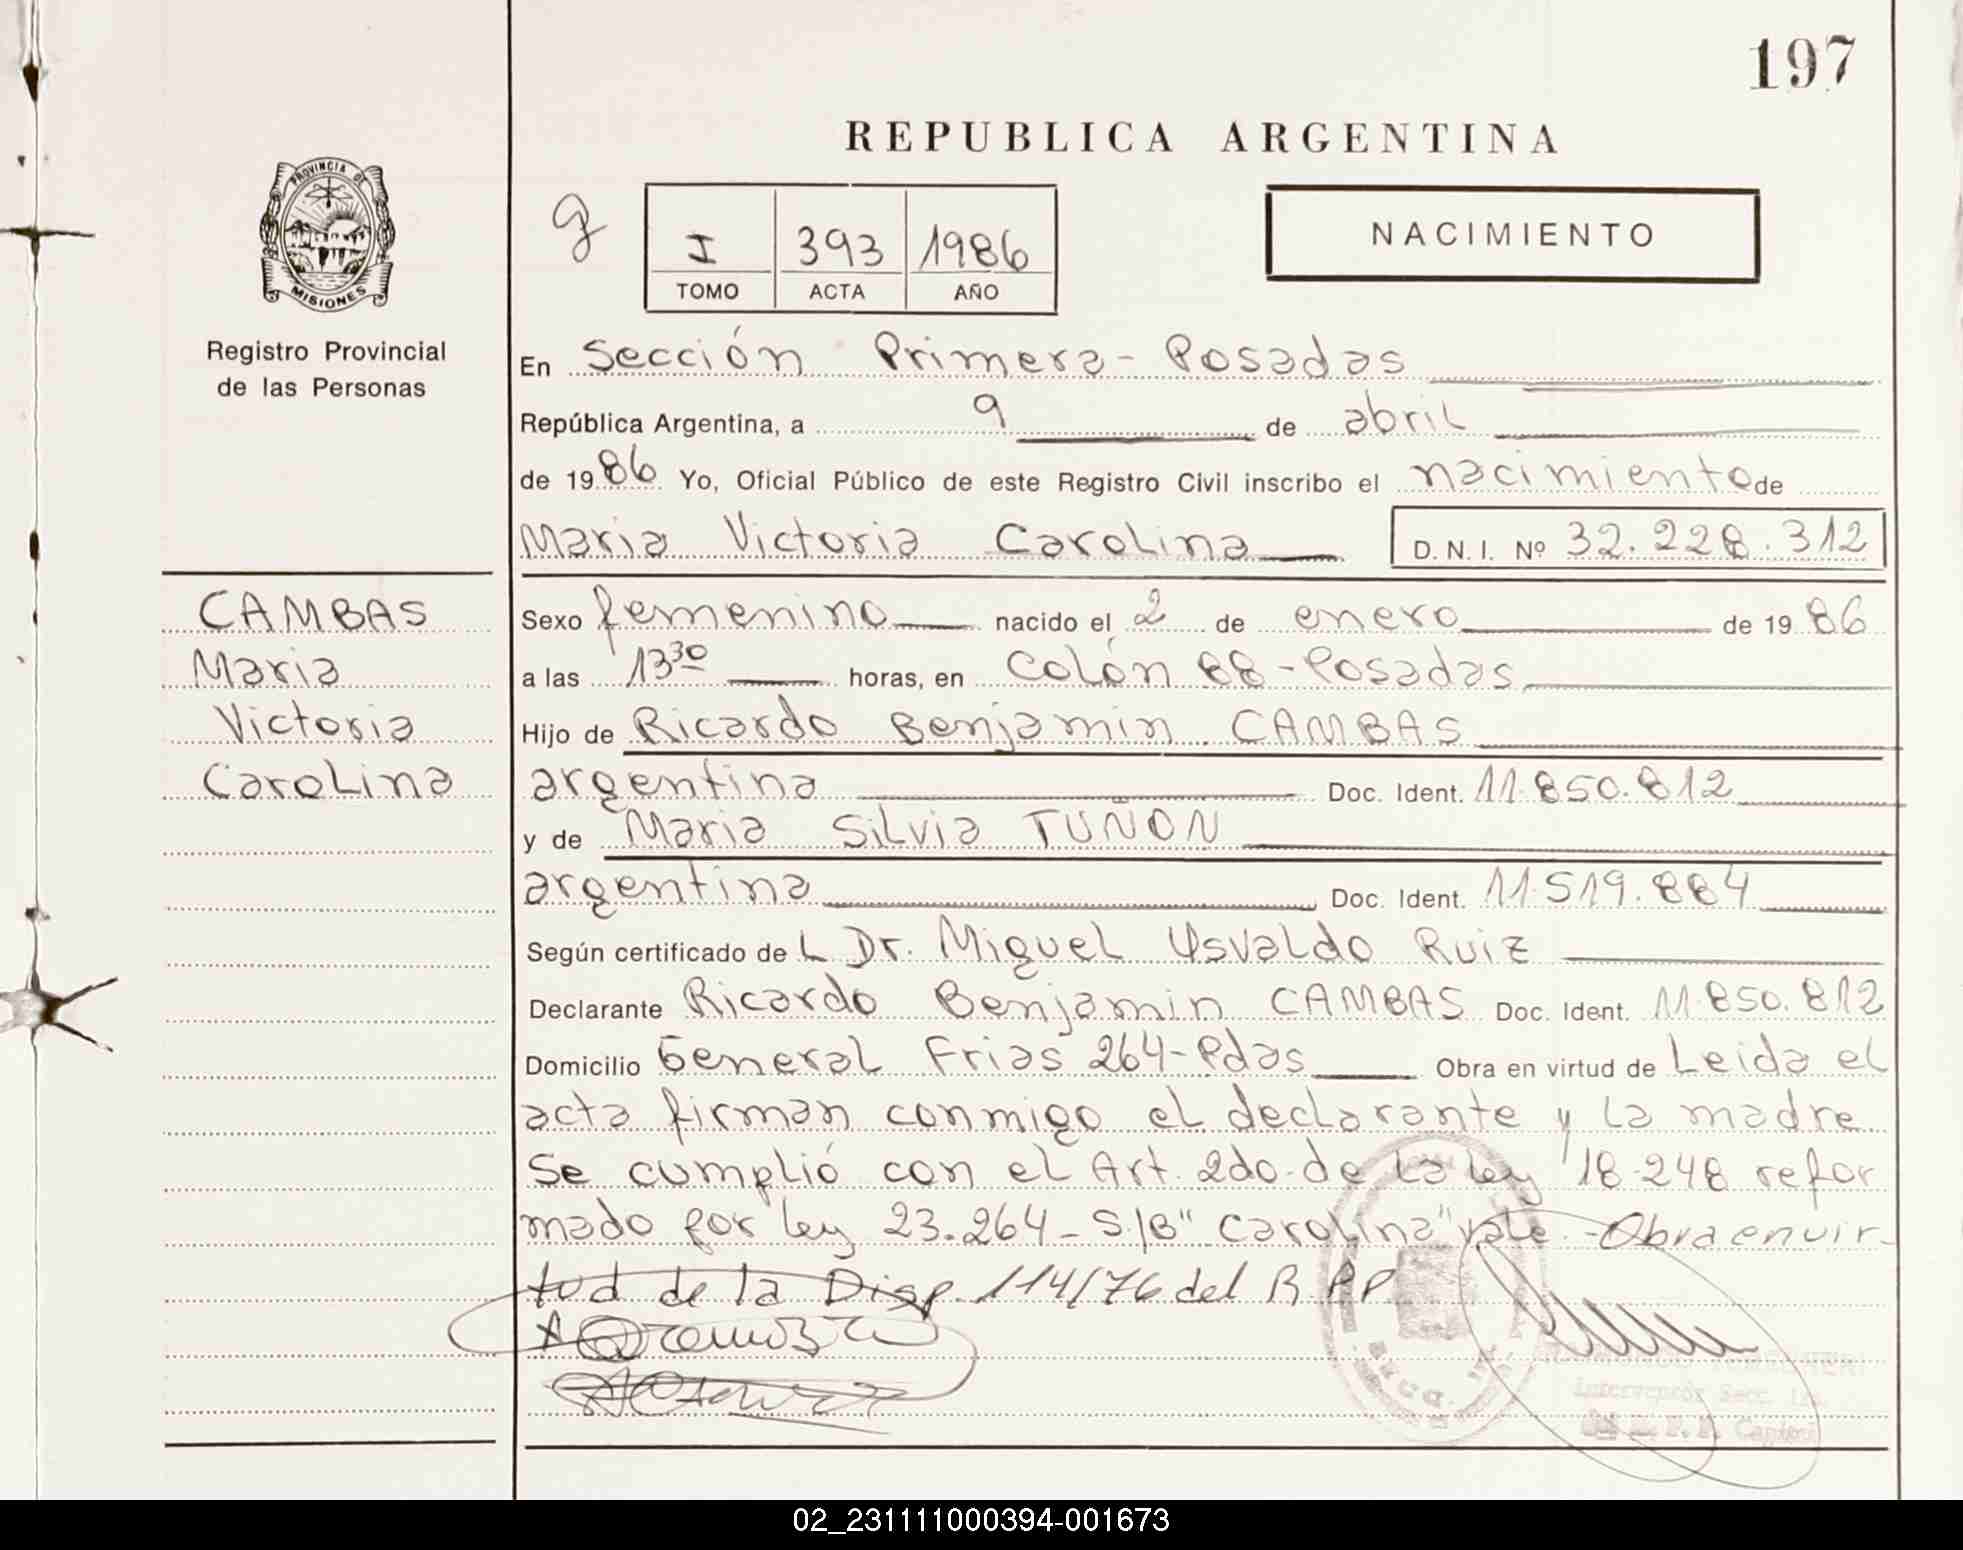 197
REPUBLICA ARGENTINA
PROVINCIA DE
MISIONES
Registro Provincial
de las Personas
I 393 1986
TOMO ACTA AÑO
NACIMIENTO
En Sección Primera - Posadas
República Argentina, a 9 de abril
de 1986 Yo, Oficial Público de este Registro Civil inscribo el nacimiento de
Maria Victoria Carolina D. N. I. Nº 32.228.312
CAMBAS
Maria
Victoria
Carolina
Sexo femenino nacido el 2 de enero de 1986
a las 13 30 horas, en Colón 88 - Posadas
Hijo de Ricardo Benjamin CAMBAS
argentina Doc. Ident. 11.850.812
y de Maria Silvia TUÑON
argentina Doc. Ident. 11.519.884
Según certificado de L Dr. Miguel Osvaldo Ruiz
Declarante Ricardo Benjamin CAMBAS Doc. Ident. 11.850.812
Domicilio General Frias 264 - Pdas Obra en virtud de Leida el
acta firman conmigo el declarante y la madre
Se cumplió con el Art. 2do. de la ley 18.248 refor
mado por ley 23.264 - S/B "Carolina" vale. - Obra en vir-
tud de la Disp. 114/76 del R.P.P.
Secc.
02_231111000394-001673